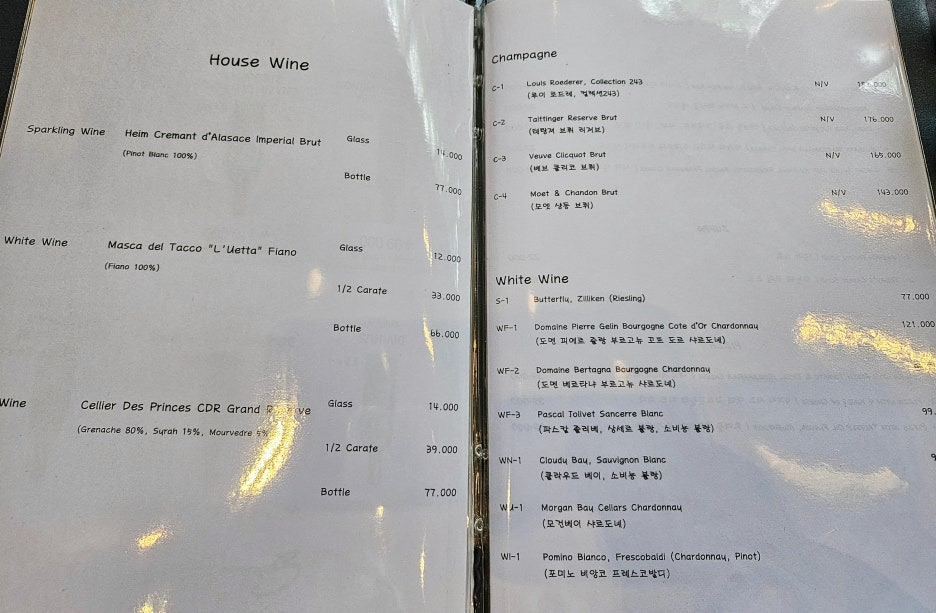 House Wine
Sparkling Wine Heim Cremant d'Alasace Imperial Brut Glass 14.000
(Pinot Blanc 100%)
Bottle 77.000
White Wine Masca del Tacco "L'Uetta" Fiano Glass 12.000
(Fiano 100%)
1/2 Carate 33.000
Bottle 66.000
Wine Cellier Des Princes CDR Grand Glass 14.000
(Grenache 80%, Syrah 15%, Mourvedre 5%
1/2 Carate 39.000
Bottle 77.000
Champagne
C-1 Louis Roederer, Collection 243 N/V
(루이 로드레, 컬렉션243)
C-2 Taittinger Reserve Brut N/V 176.000
(떼땅져 브뤼 리저브)
C-3 Veuve Clicquot Brut N/V 165.000
(베브 클리코 브뤼)
C-4 Moet & Chandon Brut N/V 143.000
(모엣 샹동 브뤼)
White Wine
S-1 Butterfly, Zilliken (Riesling) 77.000
WF-1 Domaine Pierre Gelin Bourgogne Cote d'Or Chardonnay 121.000
(도멘 피에르 줄랑 부르고뉴 꼬뜨 도르 샤르도네)
WF-2 Domaine Bertagna Bourgogne Chardonnay
(도멘 베르타냐 부르고뉴 샤르도네)
WF-3 Pascal Tolivet Sancerre Blanc 99.
(파스칼 졸리베, 상세르 블랑, 소비뇽 블랑)
WN-1 Cloudy Bay, Sauvignon Blanc 9
(클라우드 베이, 소비뇽 블랑)
WU-1 Morgan Bay Cellars Chardonnay
(모건베이 샤르도네)
WI-1 Pomino Bianco, Frescobaldi (Chardonnay, Pinot)
(포미노 비앙코 프레스코발디)